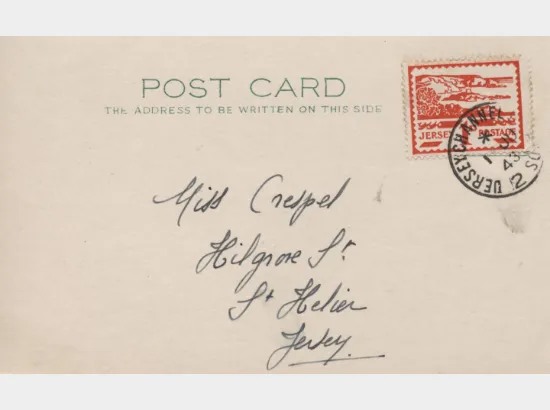 POST CARD
THE ADDRESS TO BE WRITTEN ON THIS SIDE
JERSEY POSTAGE
JERSEY CHANNEL
43
2
Miss Crespel
Hilgrove St.
St Helier
Jersey.